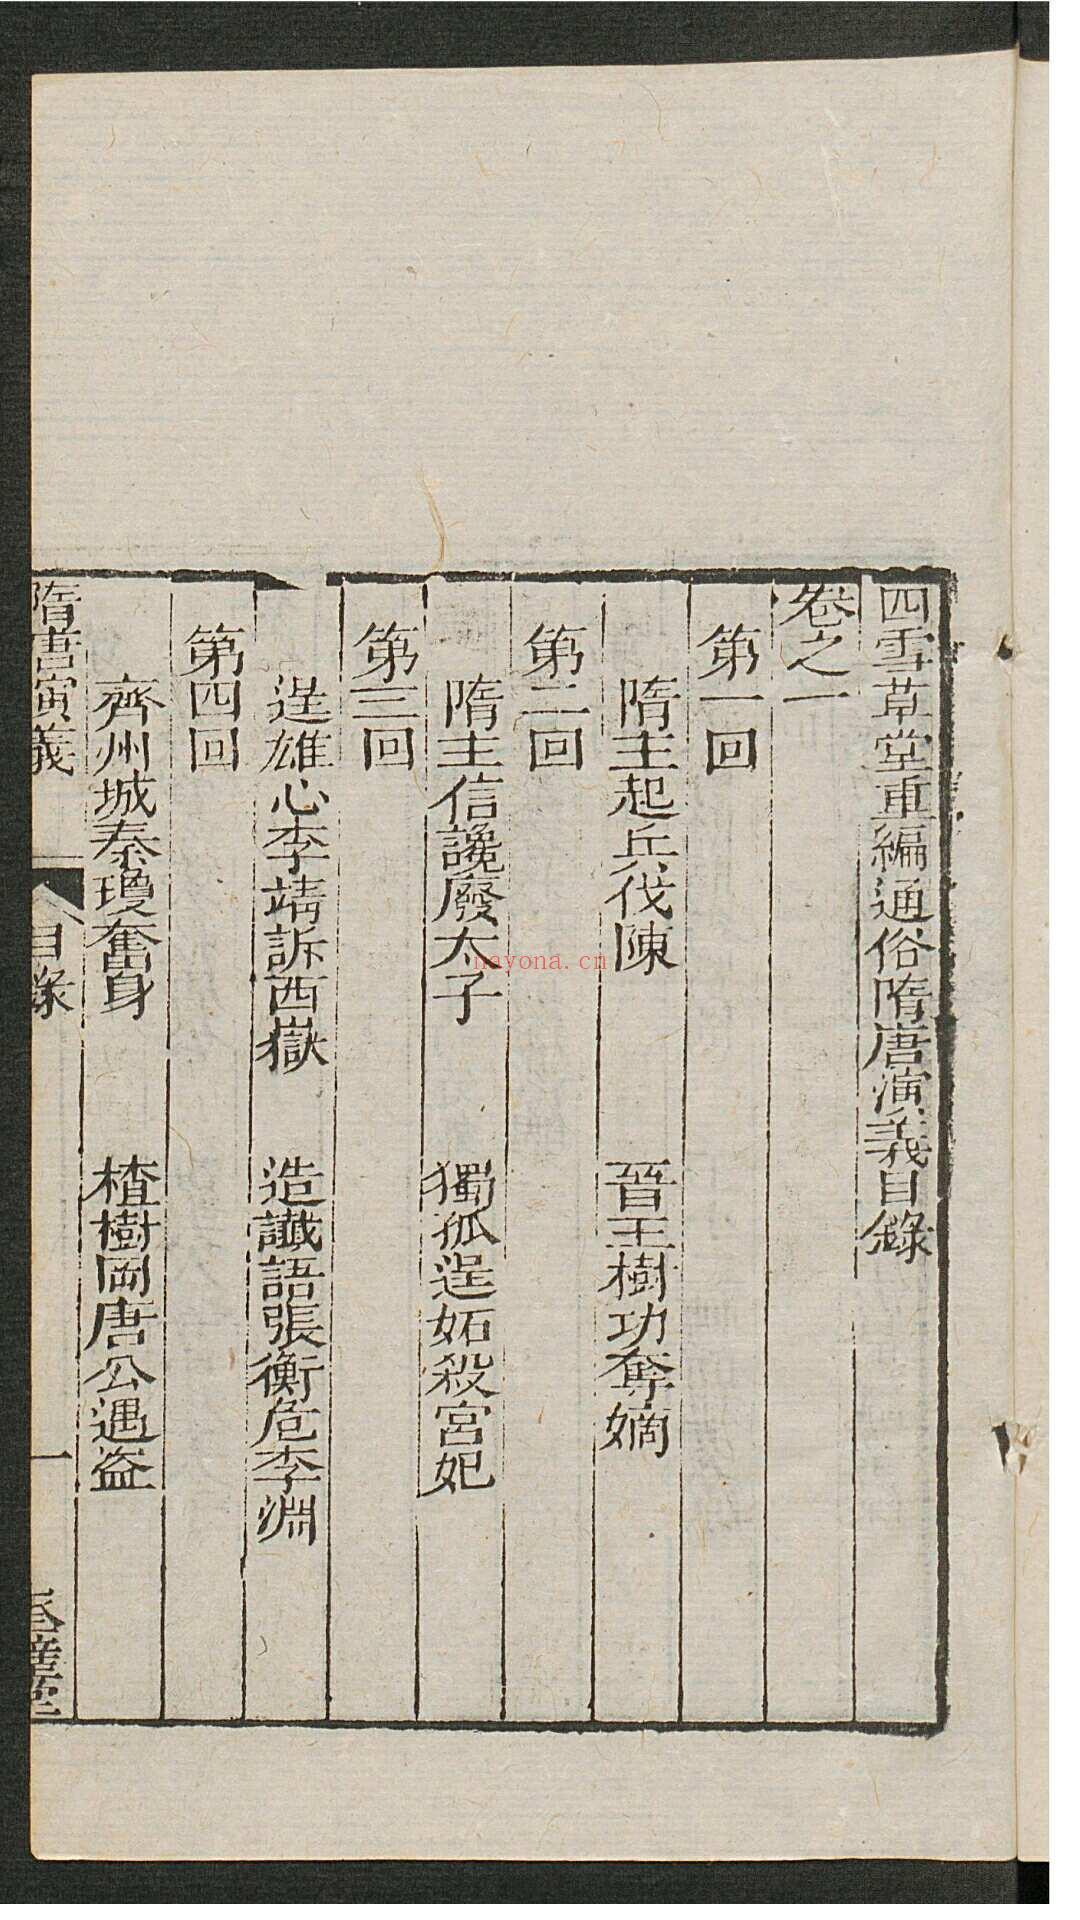 四雪草堂重編通俗隋唐演義目錄
卷之一
第一回
隋主起兵伐陳　晉王樹功奪嫡
第二回
隋主信讒廢太子　獨孤逞妬殺宮妃
第三回
逞雄心李靖訴西嶽　造讖語張衡危李淵
第四回
齊州城秦瓊奮身　楂樹岡唐公遇盜
隋唐演義　目錄　一
nayona.cn